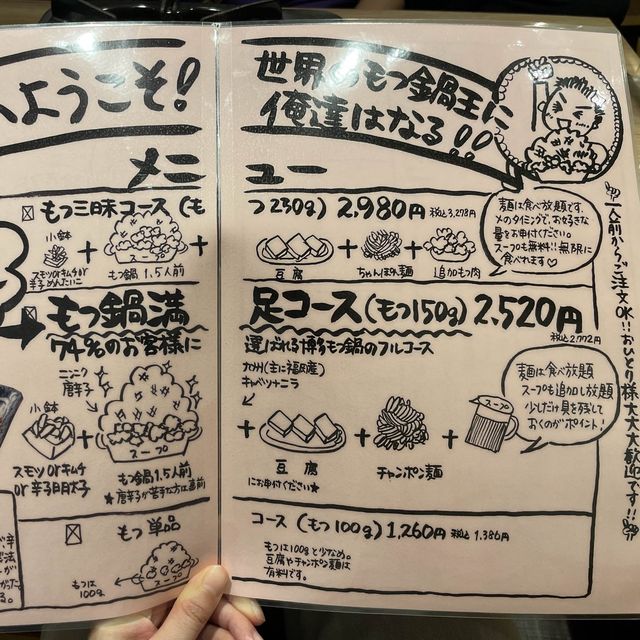 ようこそ!
世界のもつ鍋王に
俺達はなる!!
メニュー
もつ三昧コース(もつ250g) 2,980円 税込3,278円
小鉢
スモツorキムチor
辛子めんたいこ
もつ鍋1.5人前
豆腐
ちゃんぽん麺
追加もつ肉
麺は食べ放題です。
〆のタイミングで、お好きな
量をお申付ください。
スープも無料!!無限に
食べれます♡
もつ鍋満足コース(もつ150g) 2,520円
税込2,772円
74%のお客様に選ばれる博多もつ鍋のフルコース
ニンニク
唐辛子
九州(主に福岡産)
キャベツ+ニラ
小鉢
スモツorキムチ
or辛子明太子
スープ
もつ鍋1.5人前
※唐辛子が苦手な方は直前にお申付ください★
豆腐
チャンポン麺
スープ
麺は食べ放題
スープも追加し放題
少しだけ具を残して
おくのがポイント!
もつ単品コース(もつ100g) 1,260円 税込1,386円
もつは
100g
スープ
もつは100gと少なめ。
豆腐やチャンポン麺は
有料です。
一人前からご注文OK!!おひとり様大大大歓迎です!!